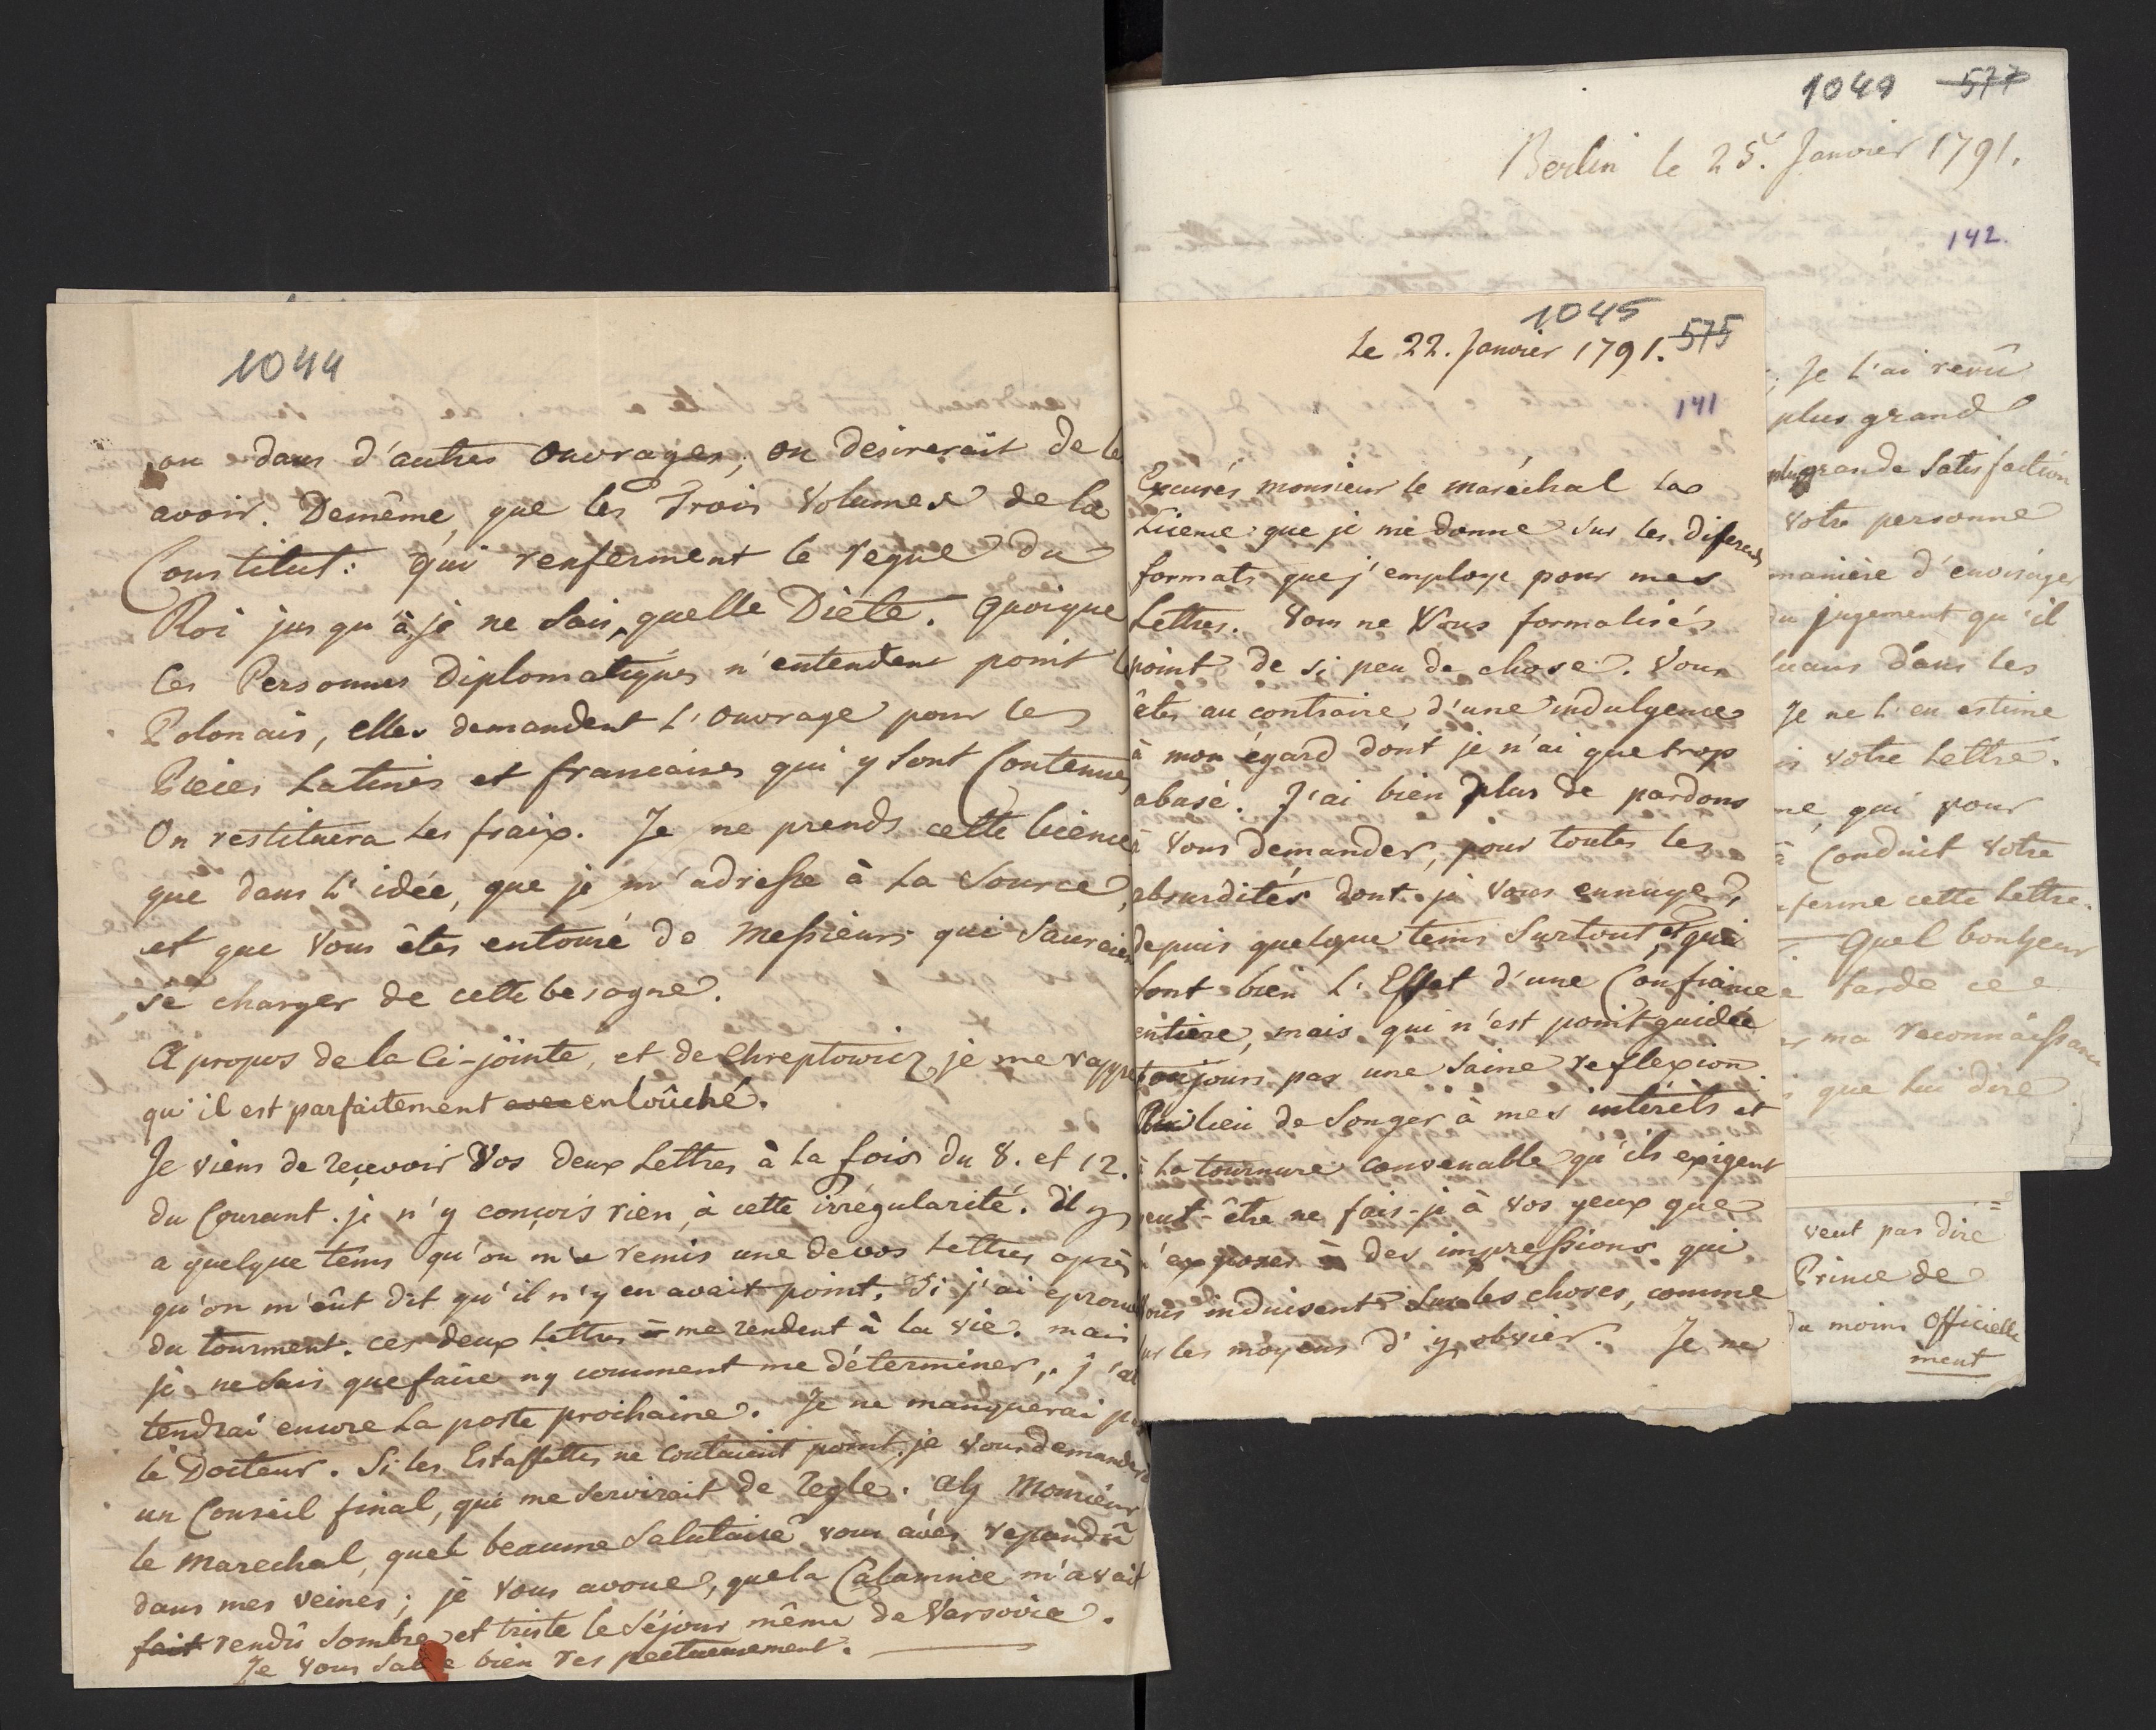 1044
ou dans d'autres Ouvrages; on desirerait de le
avoir. Demême, que les Trois Volumes de la
Constitut: qui renferment le regne du
Roi jusqu'à, je ne sais, quelle Diete. Quoique
les Personnes Diplomatiques n'entendent point l
Polonais, elles demandent l'ouvrage pour les
Pieces Latines et francaises qui y sont Contenues
On restituera les fraix. Je ne prends cette licence
que dans l'idée, que je m'adresse à la Source,
et que Vous êtes entouré de Messieurs qui Sauraien
se charger de cette besogne.
A propos de la Ci-jointe, et de Chreptowicz, je me rappe
qu'il est parfaitement enloûché.
Je viens de recevoir Vos deux Lettres à la fois du 8. et 12.
du Courant. je n'y conçois rien, à cette irrégularité. Il y
a quelque tems qu'on m'a remis une de vos Lettres après
qu'on m'eût dit qu'il n'y en avait point. Si j'ai eprouv
du tourment. ces deux lettres me rendent à la vie. mais
je ne sais que faire ny comment me déterminer, j'at
tendrai encore la poste prochaine. Je ne manquerai p
le Docteur. Si les Estaffettes ne Coutaient point, je Vous demander
un Conseil final, qui me servirait de Regle. Ah Monsieur
le Marechal, quel beaume Salutaire vous avés repandû
dans mes veines; je vous avoue, que la Calomnie m'avait
fait rendû sombre et triste le séjour même de Varsovie.
Je vous salue bien respectueusement.
1045 575
Le 22. Janvier 1791.
141
Excusés monsieur le maréchal la
Licence que je me donne sur les diferends
formats que j'employe pour mes
Lettres. Vous ne Vous formalisés
point de si peu de chose. Vous
êtes au contraire, d'une indulgence
à mon égard dont je n'ai que trop
abusé. J'ai bien plus de pardons
à Vous demander, pour toutes les
absurdités dont je Vous ennuye,
depuis quelque tems surtout, et qui
sont bien l'Effet d'une Confiance
entiere, mais qui n'est point guidée
toujours par une saine reflexion.
Au lieu de songer à mes intérêts et
à la tournure convenable qu'ils exigent
eut-être ne fais-je à vos yeux que
exposer des impressions qui
ous induisent sur les choses, comme
ur les moyens d'y obvier. Je ne
1049 577
Berlin le 25. Janvier 1791.
142.
; Je l'ai revû
plus grand
plus grande Satisfaction
votre personne
maniere d'envisager
du jugement qu'il
dans les
Je ne l'en estime
votre Lettre.
ne, qui pour
à Conduit votre
ferme cette Lettre.
Quel bonheur
tarde ce
ma reconnaissance
que lui dire
veut pas dire
Prince de
du moins Officielle
ment